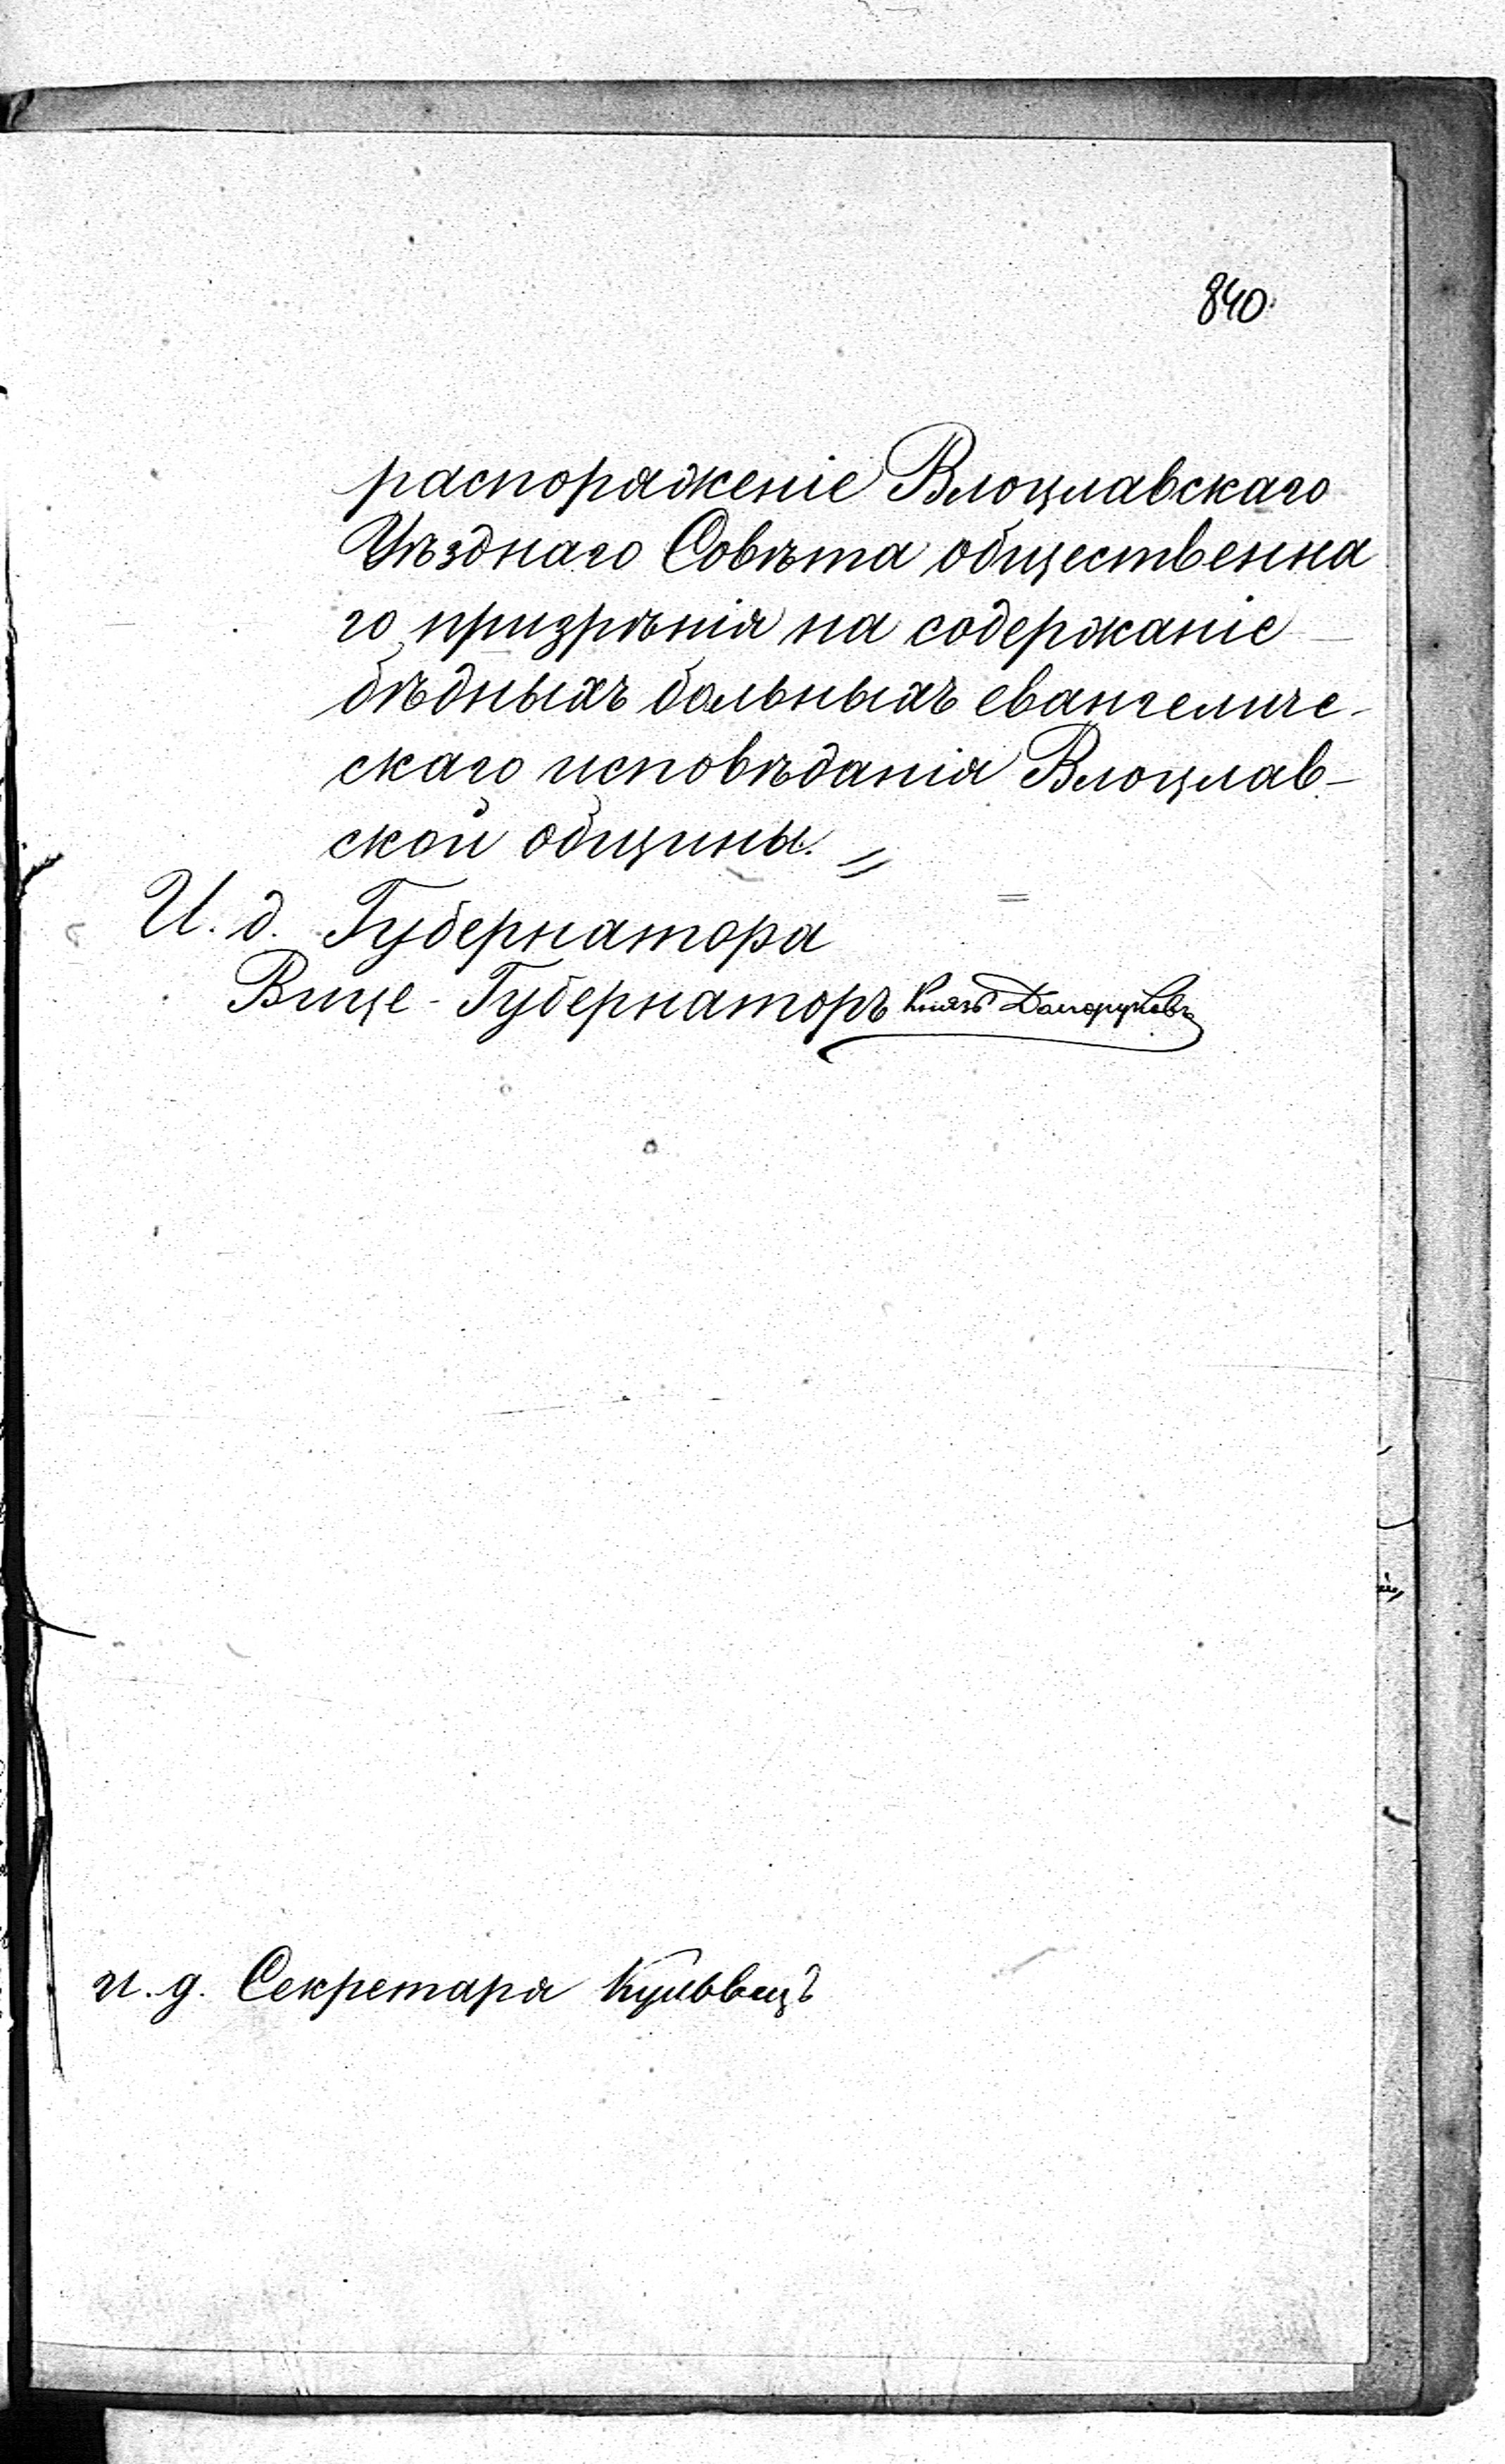 840
распоряженіе Влоцлавскаго
Уѣзднаго Совѣта общественна
го призрѣнія на содержаніе
бѣдныхъ больныхъ евангеличе-
скаго исповѣданія Влоцлав-
ской общины.
И. д. Губернатора
Вице-Губернаторъ Князь Долоруковъ
и. д. Секретаря